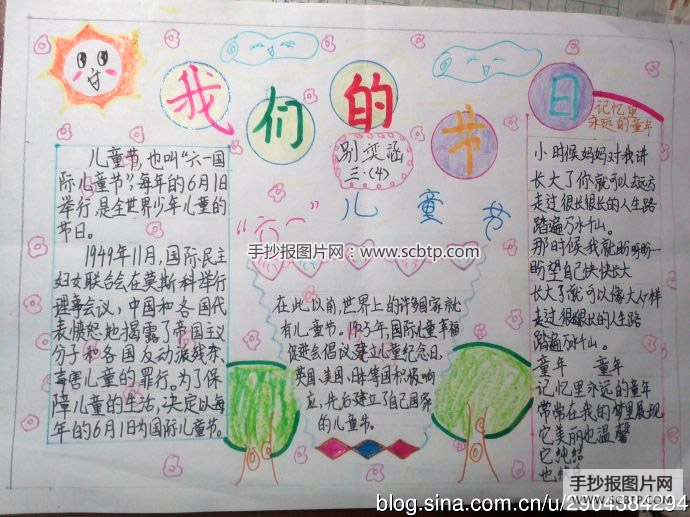 我们的节日
别奕涵
三.(4)
"六一"儿童节
儿童节,也叫“六一国
际儿童节”,每年的6月1日
举行,是全世界少年儿童的
节日。
1949年11月,国际民主
妇女联合会在莫斯科举行
理事会议,中国和各国代
表愤怒地揭露了帝国主义
分子和各国反动派残杀、
毒害儿童的罪行。为了保
障儿童的生活,决定以每
年的6月1日为国际儿童节。
在此以前,世界上的许多国家就
有儿童节。1925年,国际儿童幸福
促进会倡议建立儿童纪念日,
英国、美国、日本等国积极响
应,先后建立了自己国家
的儿童节。
记忆里
永远的童年
小时候妈妈对我讲
长大了你就可以去远方
走过很长很长的人生路
踏遍万水千山。
那时候我就盼呀盼
盼望自己快快长大
长大了就可以像大人一样
走过很长的人生路
踏遍万水千山。
童年 童年
记忆里永远的童年
常常在我的梦里展现
它美丽也温馨
它纯洁
也
手抄报图片网:www.scbtp.com
手抄报图片网
WWW.SCBTP.COM
blog.sina.com.cn/u/2904384294